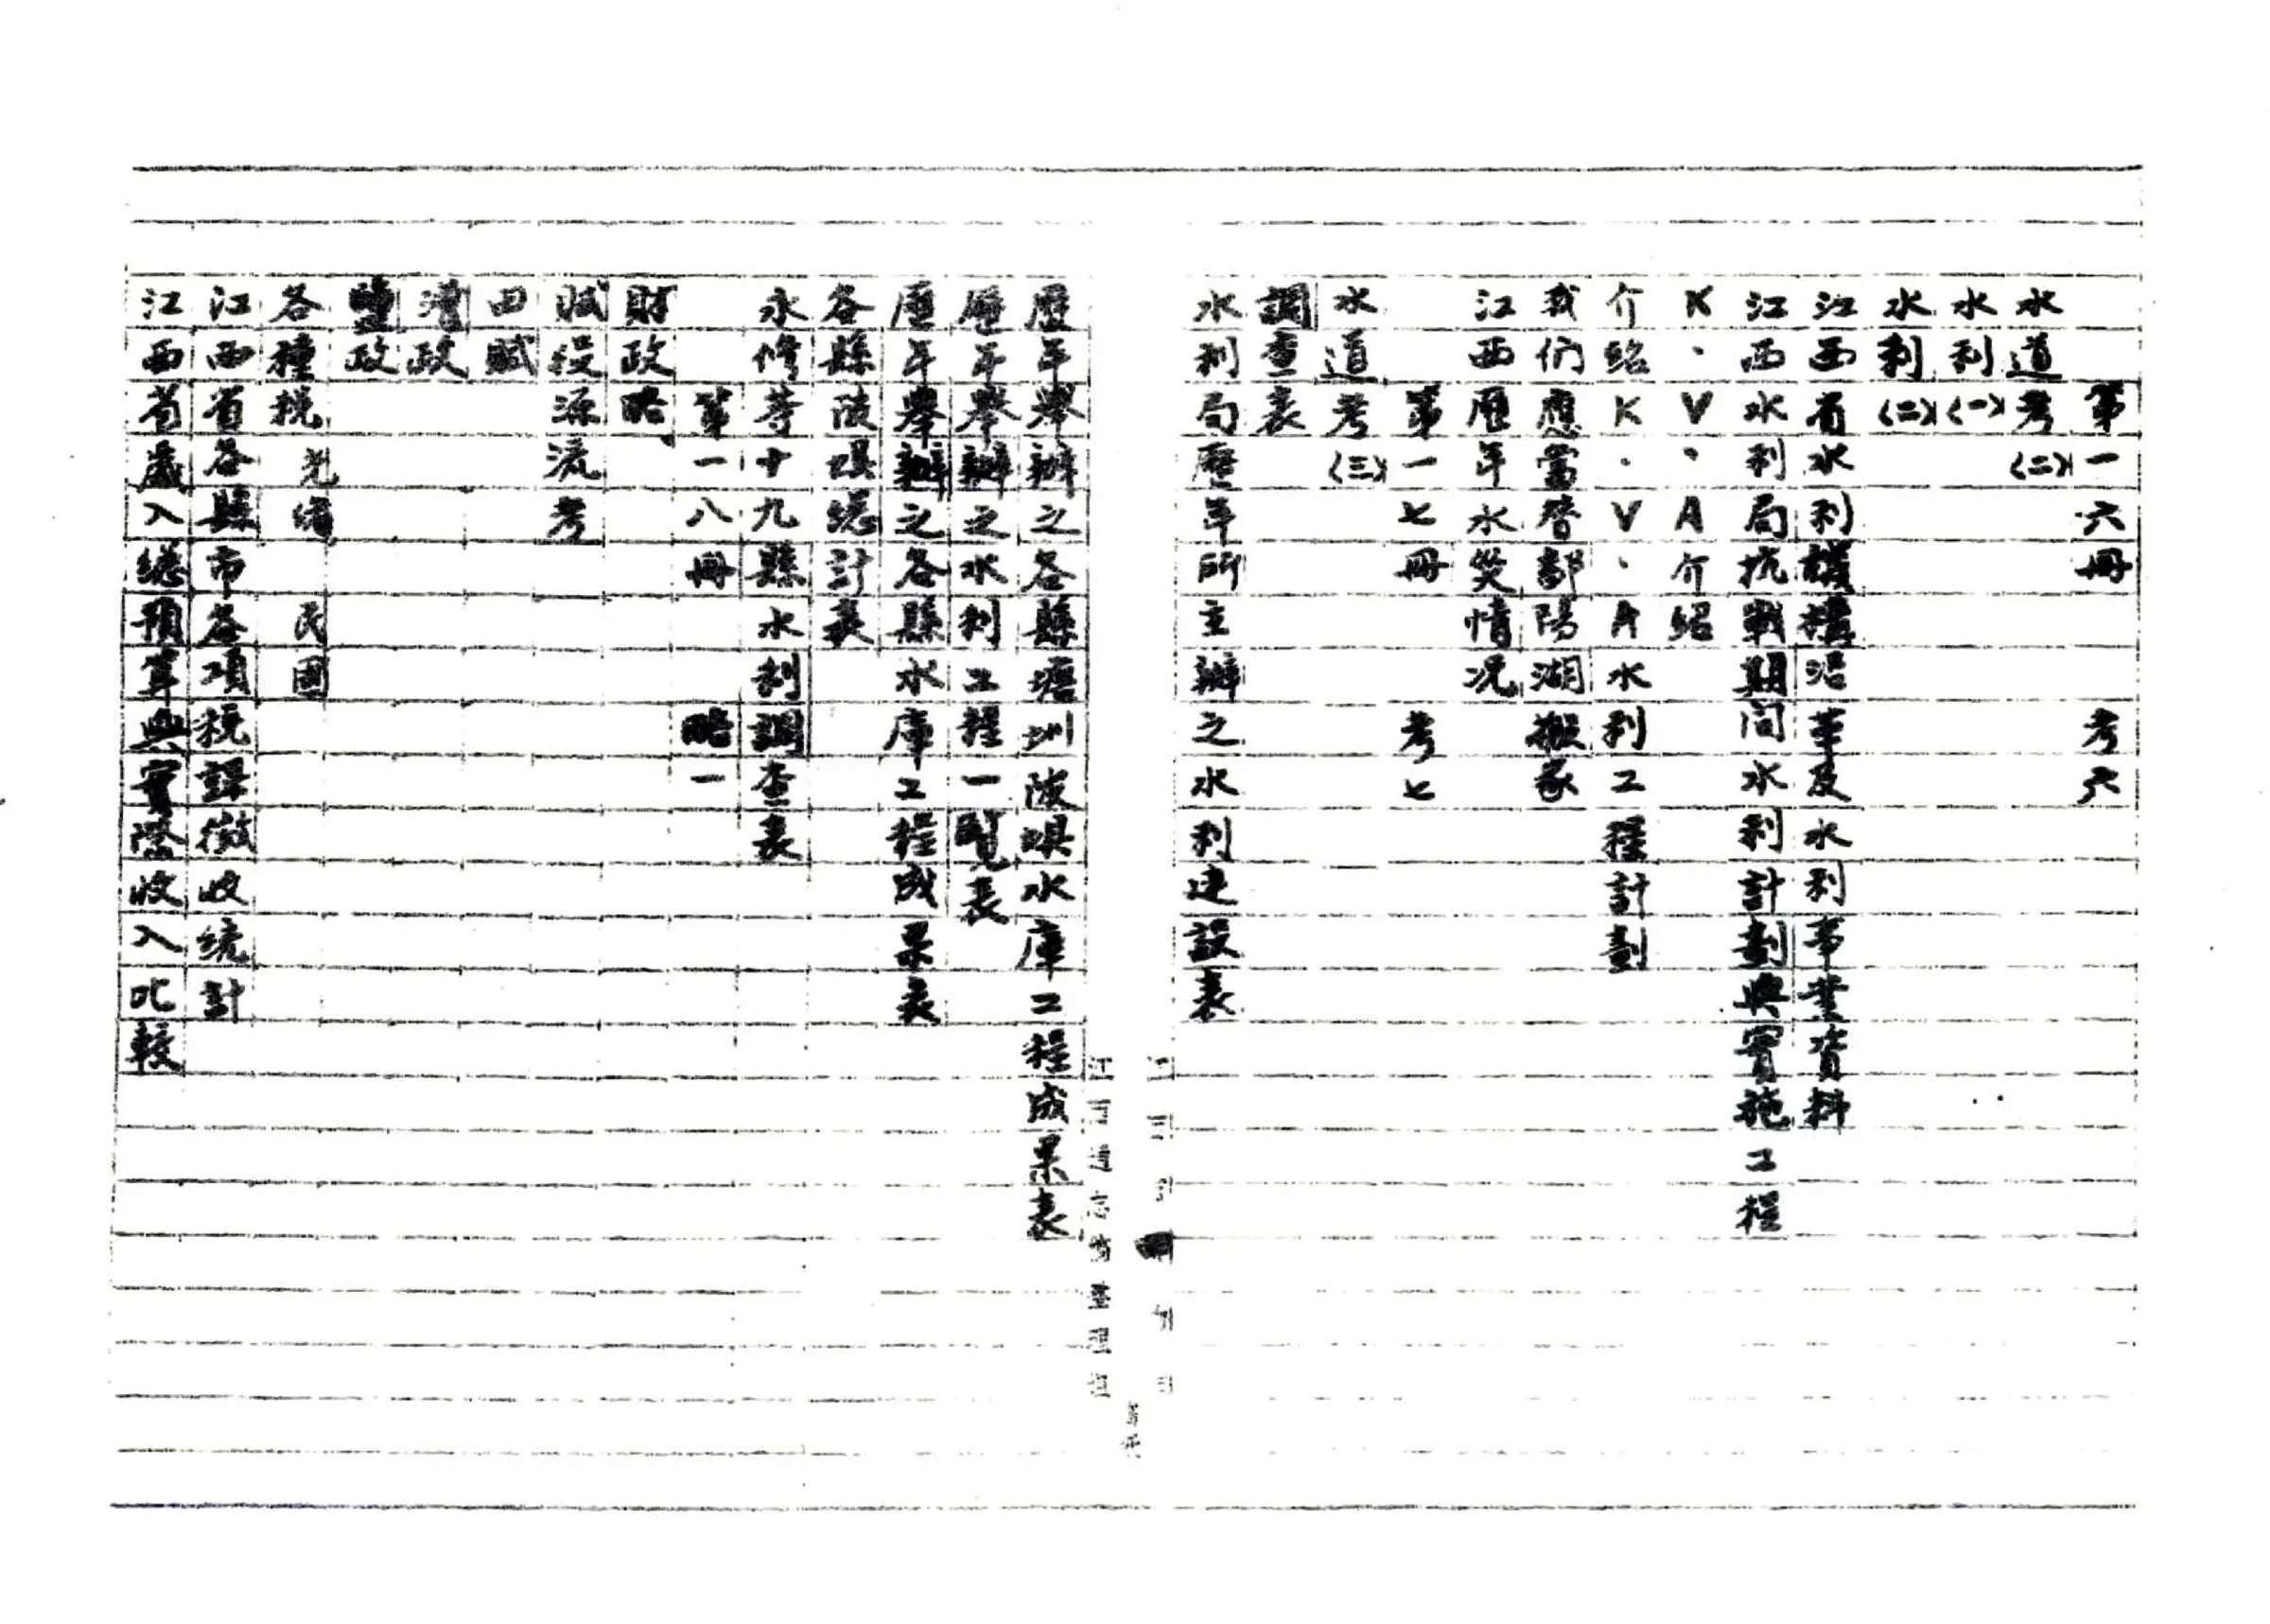 第一六冊 考六
水道考(二)
水利(一)
水利(二)
江西省水利機構沿革及水利事業資料
江西水利局抗戰期間水利計劃與實施工程
K、V、A介紹
介紹K.V.A水利工程計劃
我們應當替鄱陽湖搬家
江西歷年水災情况
第一七冊 考七
水道考(三)
調查表
水利局歷年所主辦之水利建設表
歷年舉辦之各縣塘圳陂壩水庫工程成果表
歷年舉辦之水利工程一覽表
歷年舉辦之各縣水庫工程成果表
各縣陂壩總計表
永修等十九縣水利調查表
第一八冊 略一
財政略
賦役源流考
田賦
漕政
鹽政
各種稅 光緒 民國
江西省各縣市各項稅課徵收統計
江西省歲入總預算與實際收入比較